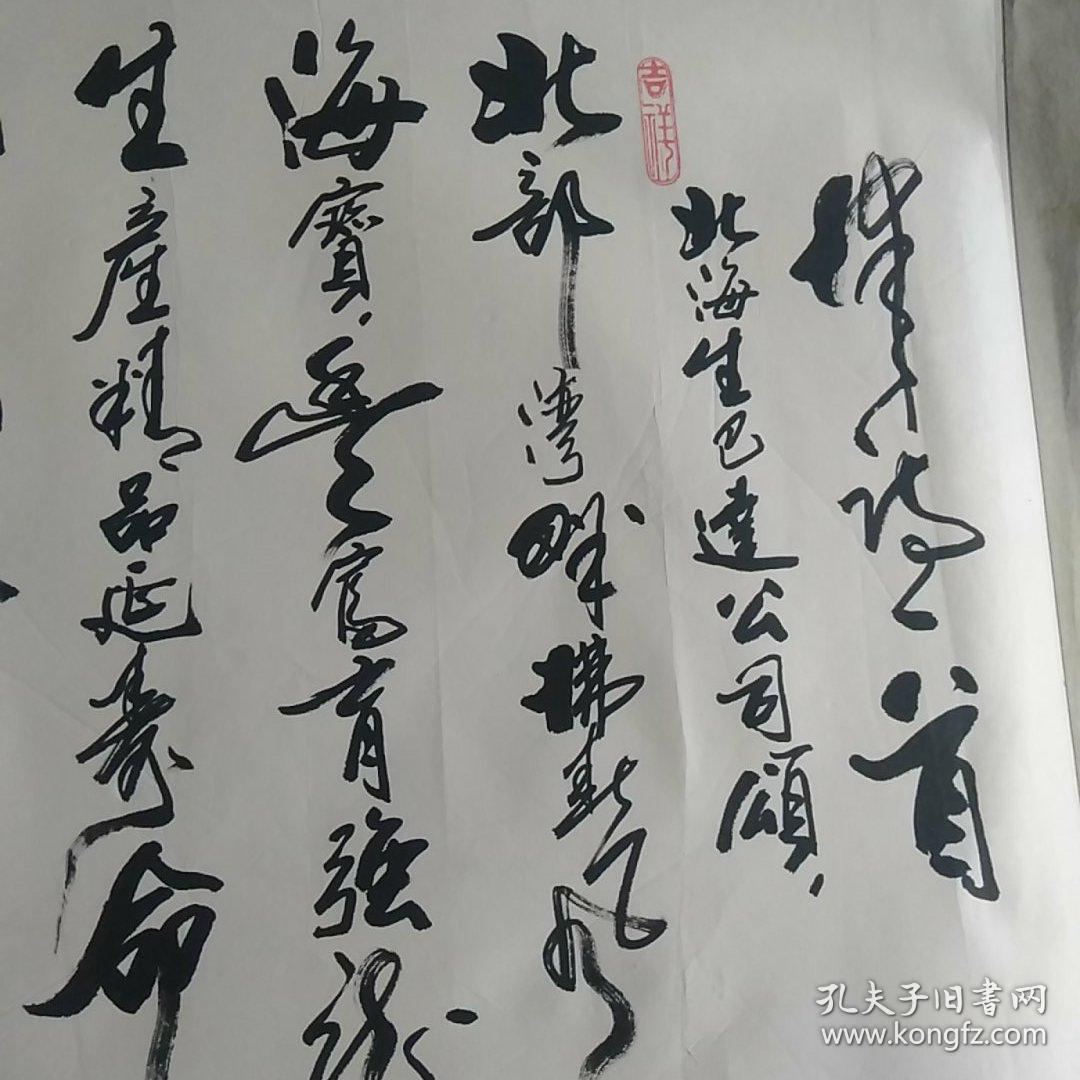 律诗一首
北海生巴達公司頌
吉祥
北部灣畔拂
海寶豐富育強
生産精品延壽命
孔夫子旧書网
www.kongfz.com